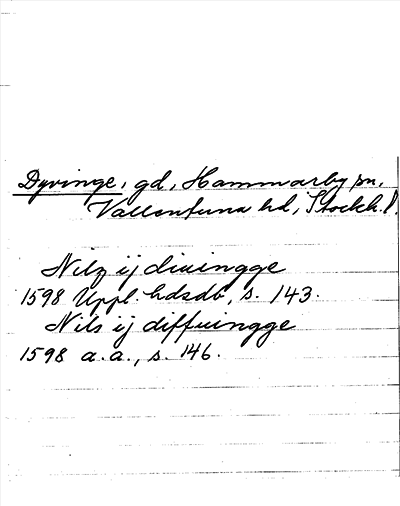 Dyvinge, gd, Hammarby sn,
Vallentuna hd, Stockh. l.
Nilz ij diuingge
1598 Uppl. hdsdb, s. 143.
Nils ij diffuingge
1598 a.a., s. 146.